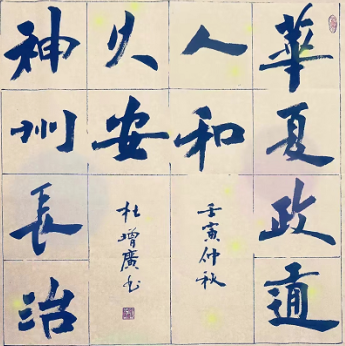 華夏政通
人和
壬寅仲秋
神州長治
久安
杜增廣书